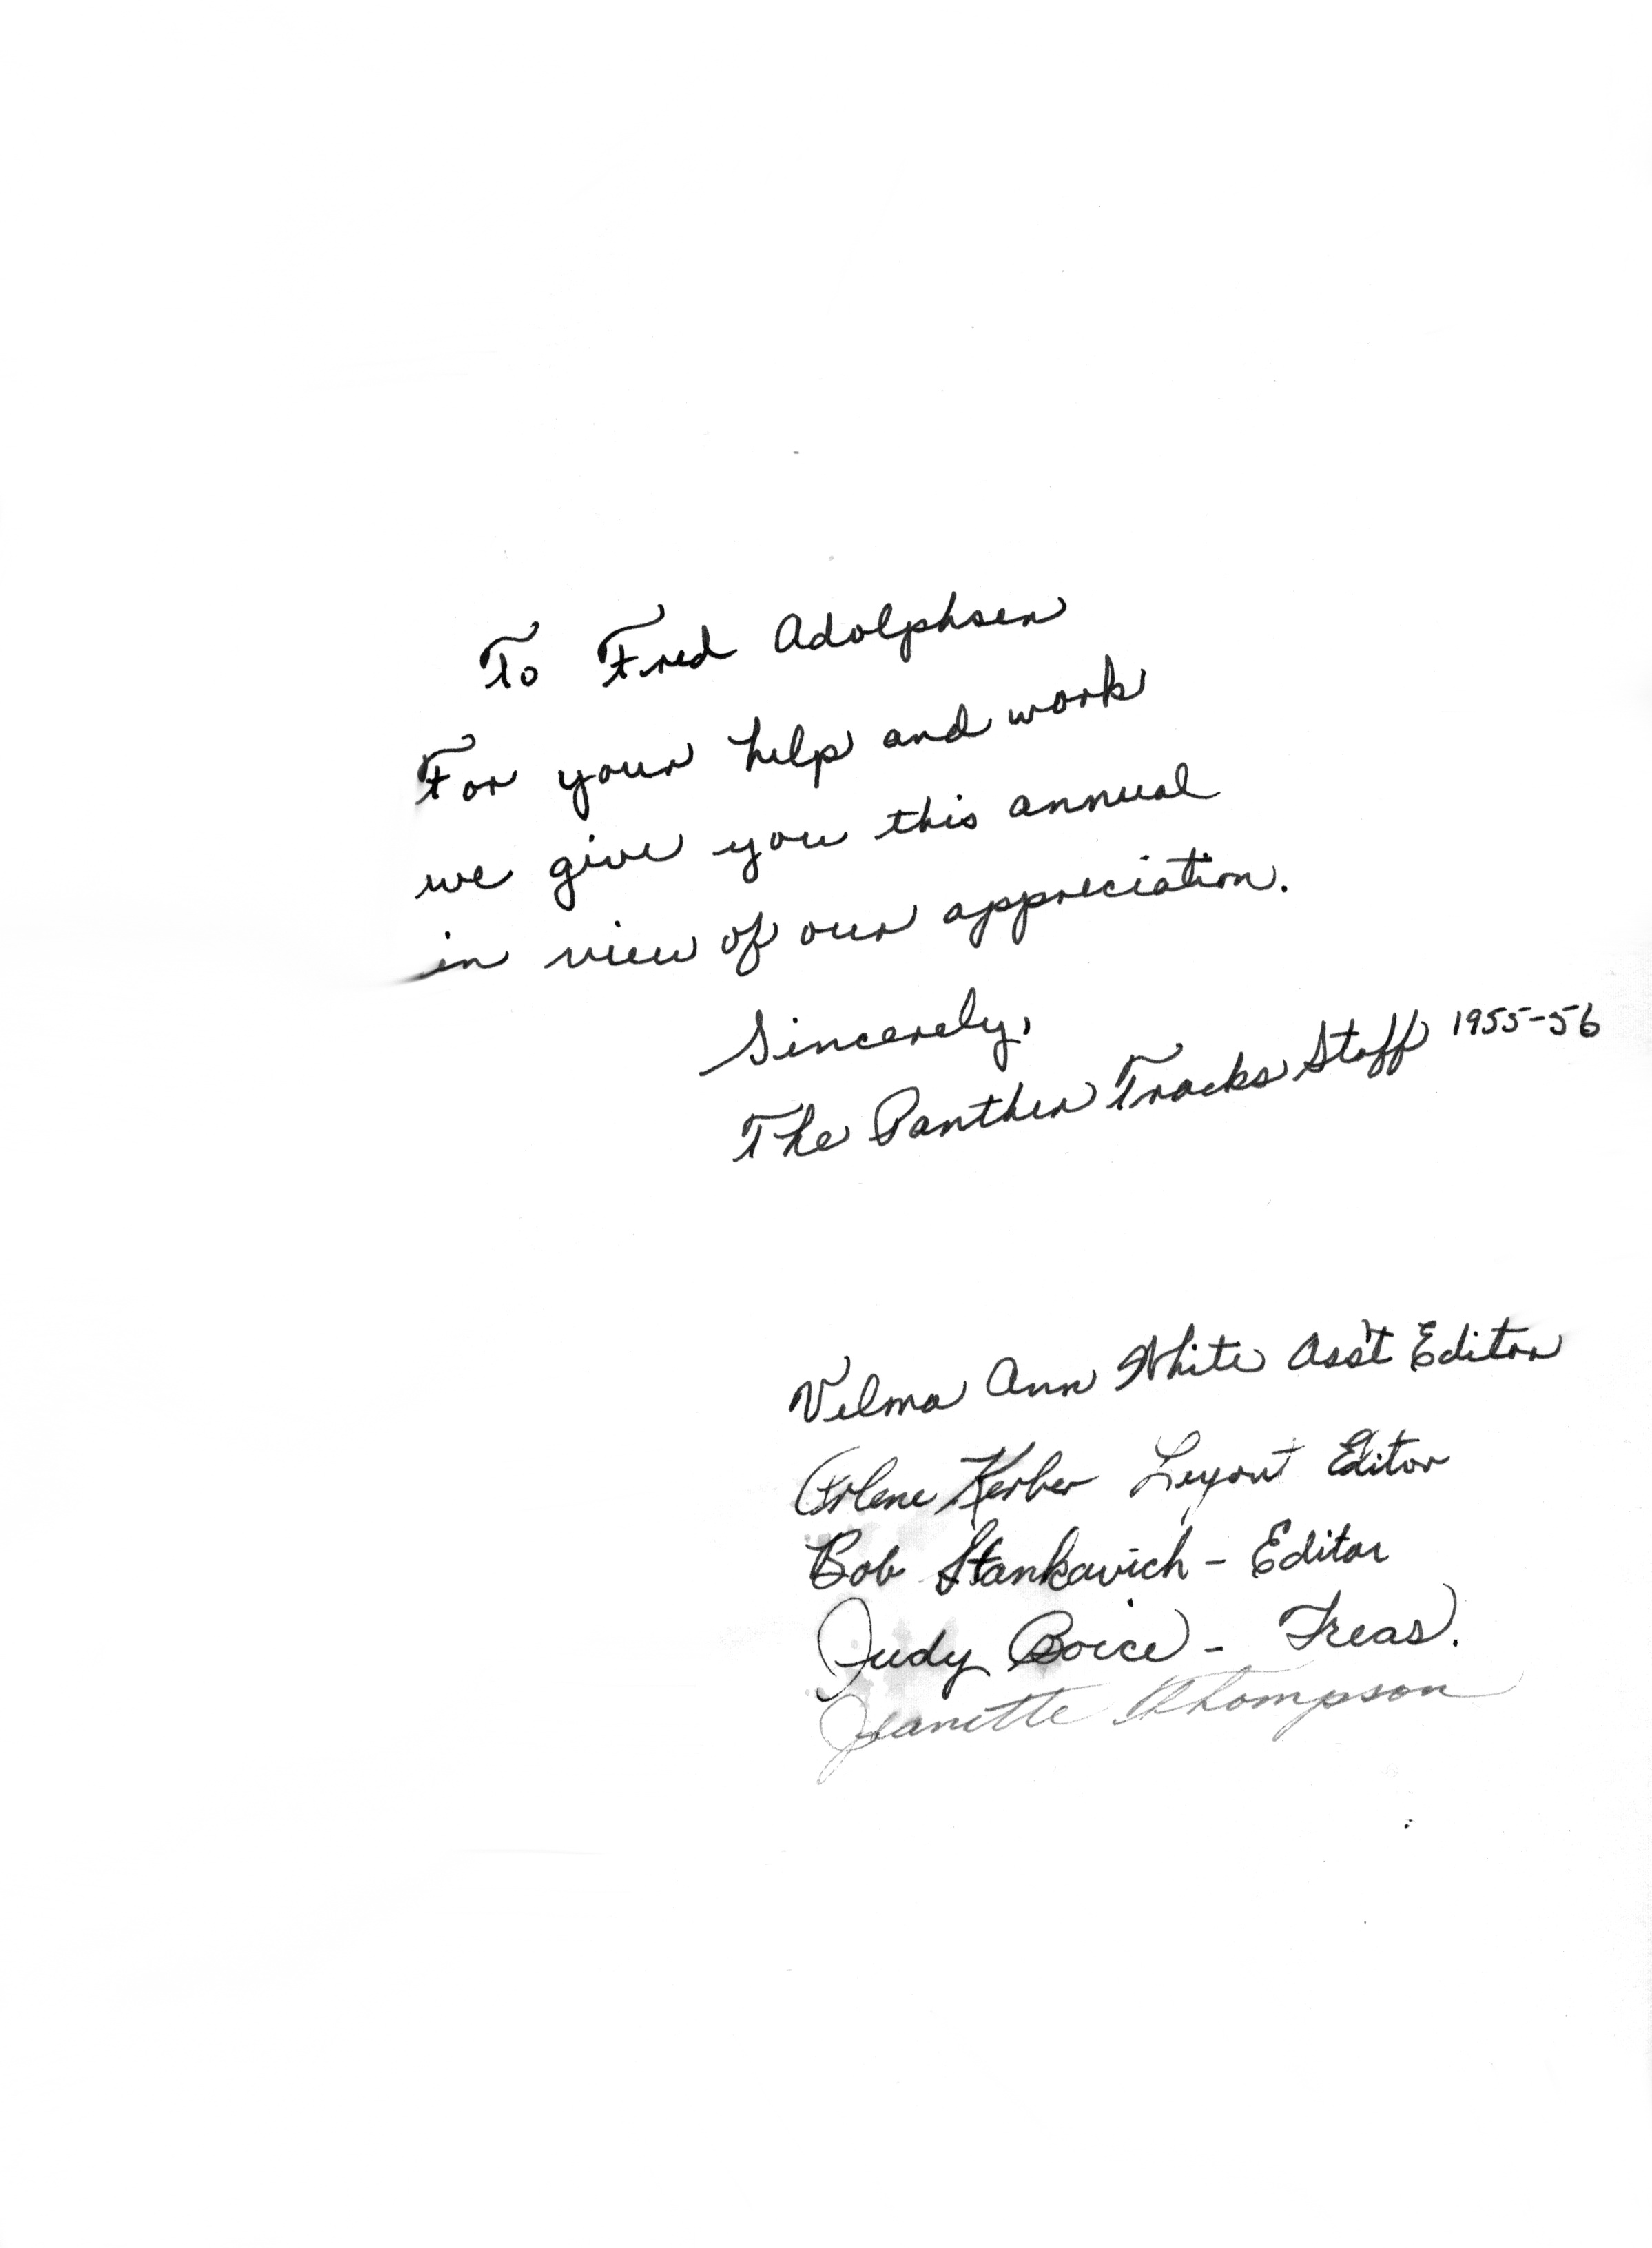 To Fred Adolphsen
For your help and work
we give you this annual
in view of our appreciation.
Sincerely,
The Panther Tracks Staff 1955-56
Velma Ann White Ass't Editor
Arlene Kerber Layout Editor
Bob Stankavich - Editor
Judy Boice - Treas.
Jeanette Thompson